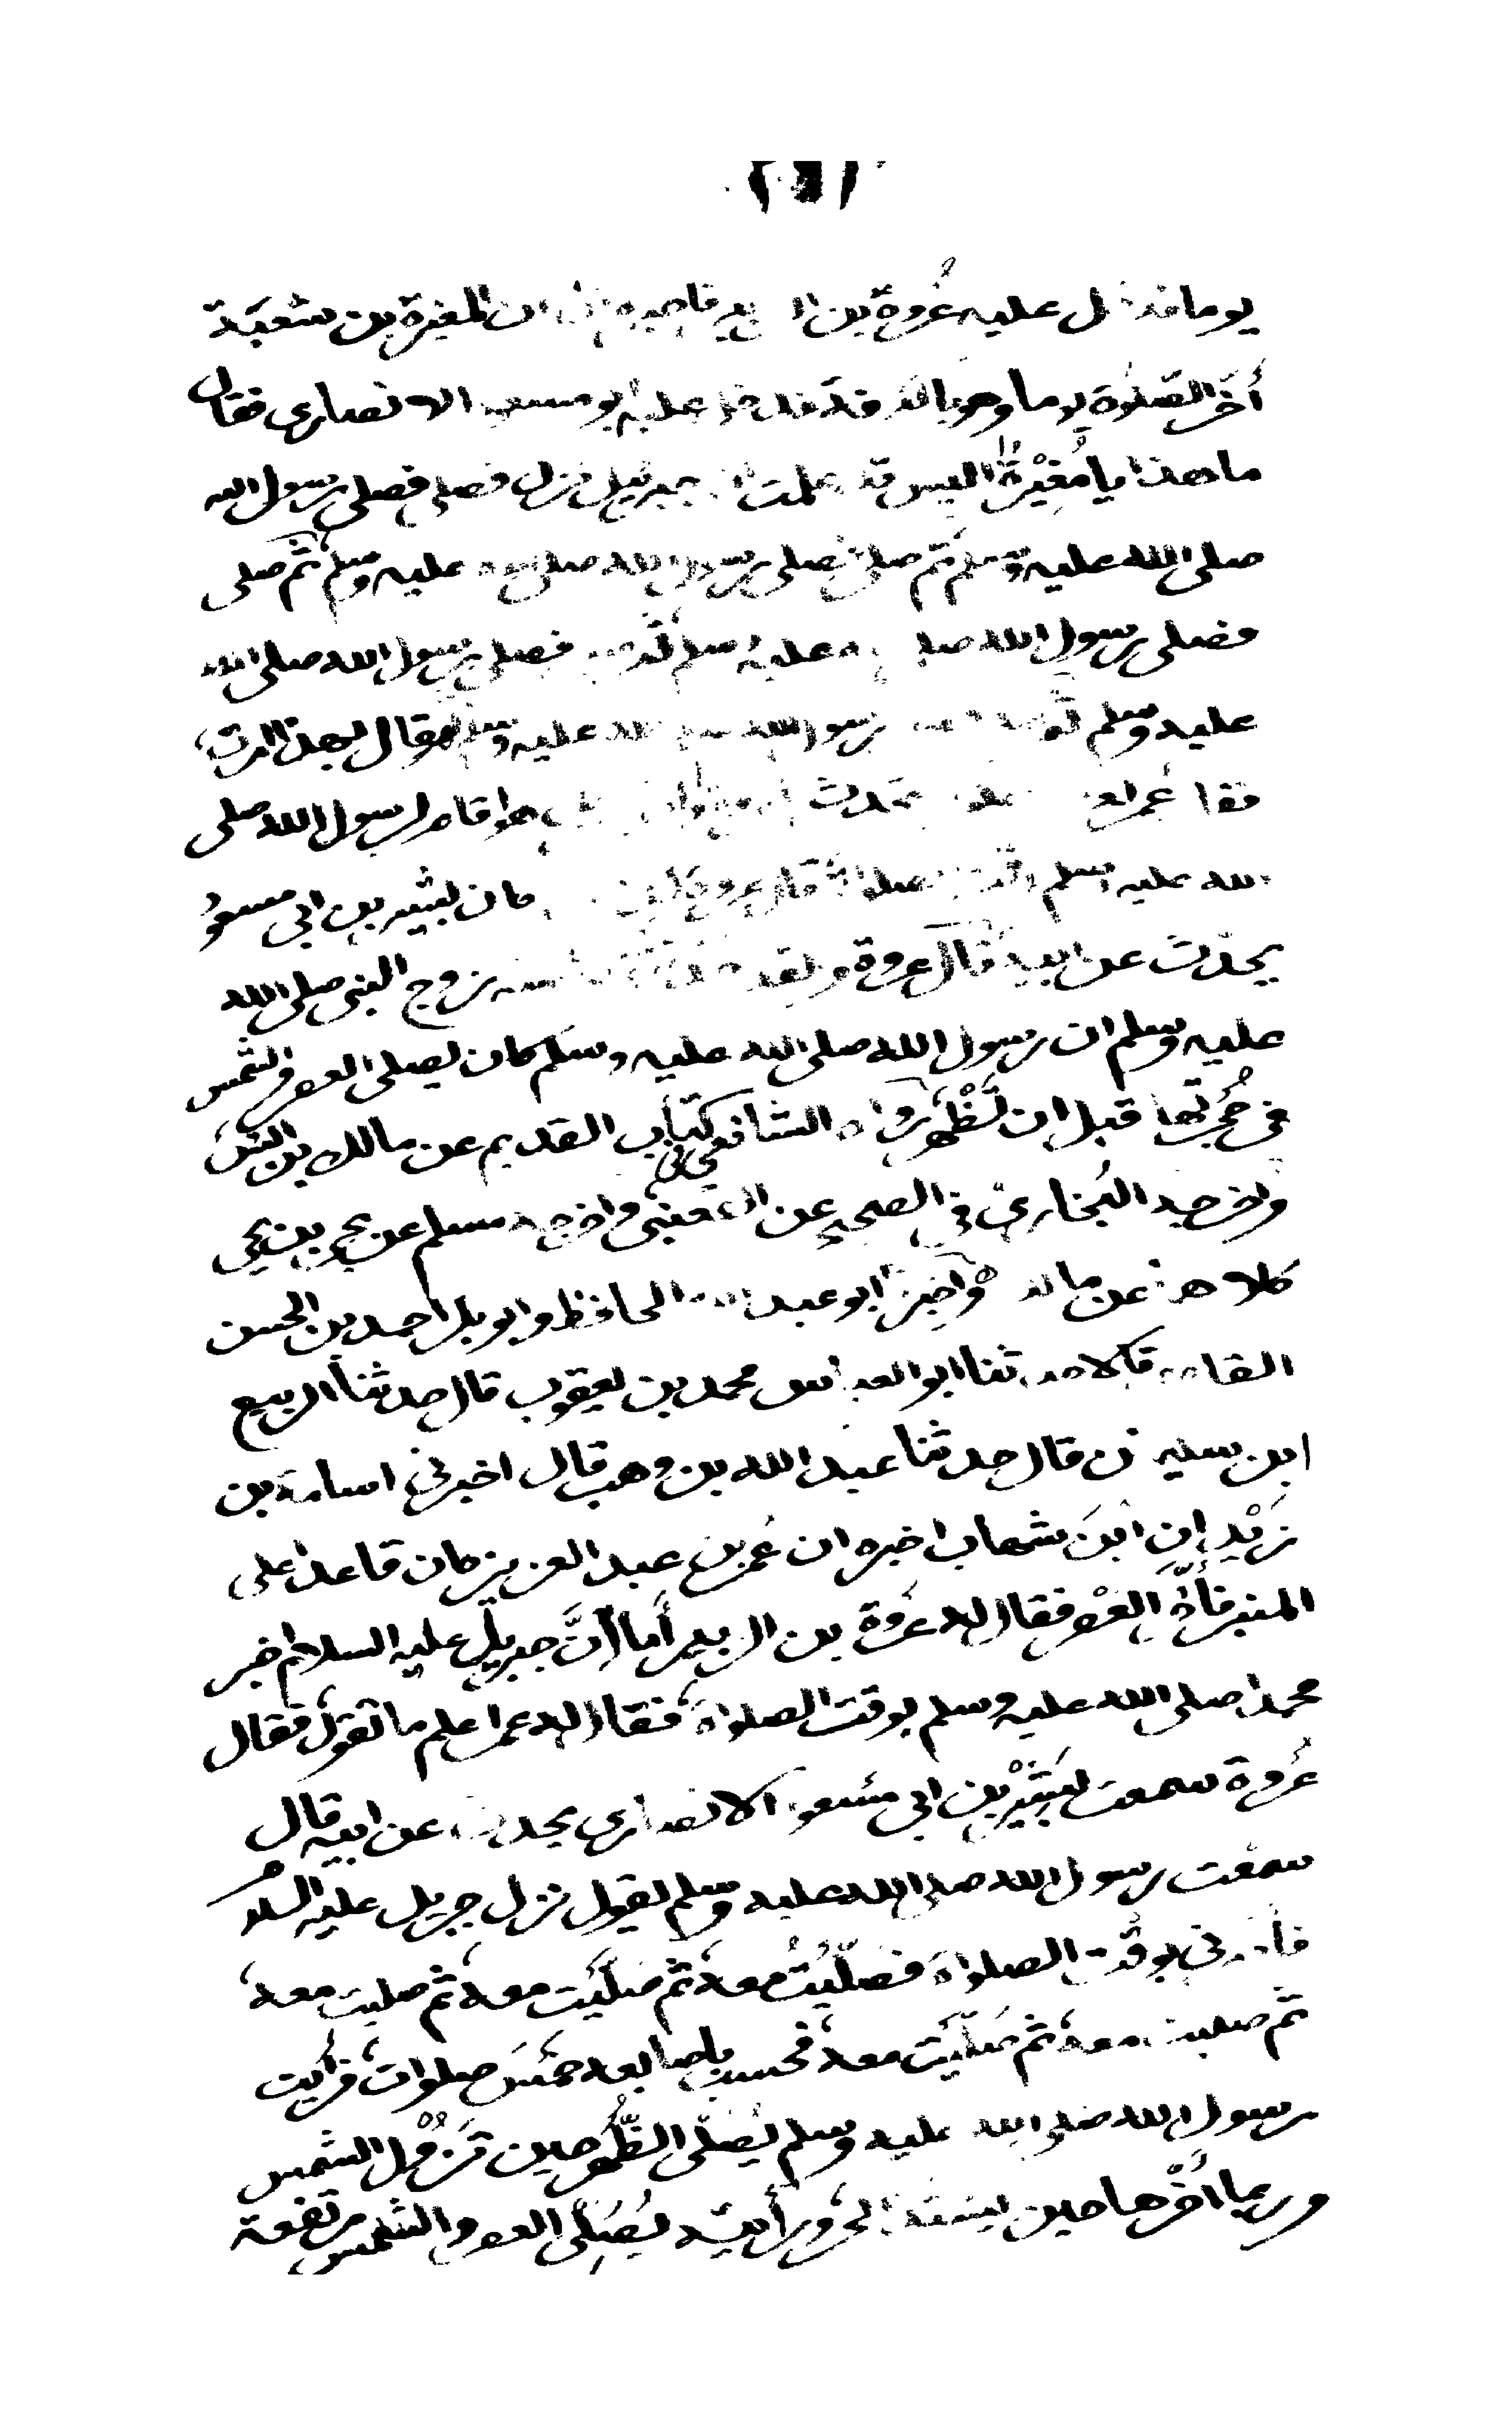 يوما فدخل عليه عُروة بن الزبير فاخبره ان المغيرة بن شعبَة
أخّر الصّلوٰة يوما وهو بالكوفة فدخل عليه ابو مسعود الانصارى فقال
ما هذا يا مُغيْرةُ اليس قد علمت ان جبرئيل نزل فصلى فصلى رسول الله
صلى الله عليه وسلم ثم صلى فصلى رسول الله صلى الله عليه وسلم ثم صلى
فصلى رسول الله صلى الله عليه وسلم ثم صلى فصلى رسول الله صلى الله
عليه وسلم ثم صلى رسول الله صلى الله عليه وسلم ثم قال بهذا امرت
فقال عمر اعلم تحدث هو اقام لرسول الله صلى
الله عليه وسلم وقت الصلوة قال عروة كان بشير بن ابى مسعود
يحدّث عن ابيه قال عروة ولقد زوج النبى صلى الله
عليه وسلم ان رسول الله صلى الله عليه وسلم كان يصلى العصر والشمس
فى حُجرتها قبل ان تَظْهر رواه الشافعى فى كتاب القديم عن مالك بن انس
واخرجه البُخارى فى الصحيح عن القعنبى واخرجه مسلم عن يحيى بن يحيى
كلاهما عن مالك واخبرنا ابو عبد الله الحافظ وابو بكر احمد بن الحسن
القاضى قالا حدثنا ابو العباس محمد بن يعقوب قال حدثنا الربيع
ابن سليمان قال حدثنا عبد الله بن وهب قال اخبرنى اسامة بن
زَيْد ان ابنَ شهاب اخبره ان عُمر بن عبد العزيز كان قاعدا على
المنبر فأخّر العصْر فقال له عروة بن الزبير أما إنَّ جبريل عليه السلام اخبر
محمدا صلى الله عليه وسلم بوقت الصلواة فقال له عمر اعلم ما تقول فقال
عُروة سمعت بشيْر بن ابى مسْعود الانصارى يحدث عن ابيه قال
سمعت رسول الله صلى الله عليه وسلم يقول نزل جبريل عليه السلام
فأخبرنى بوقْت الصلواة فصلّيْتُ معه ثم صلّيت معه ثم صليت معه
ثم صليت معه ثم صلّيت معه فحسب باصابعه خمسَ صلوات فرأيت
رسول الله صلى الله عليه وسلم يُصلّى الظُّهر حين تَزُوْل الشمس
وربما أخّرها حين يشتد الحر ورأيته يُصَلّى العصر والشمس مرتفعة